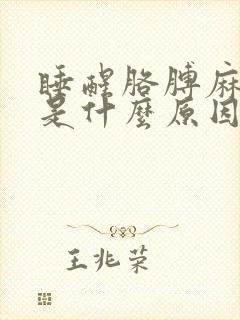 睡醒胳膊麻
是什麼原因
王兆荣